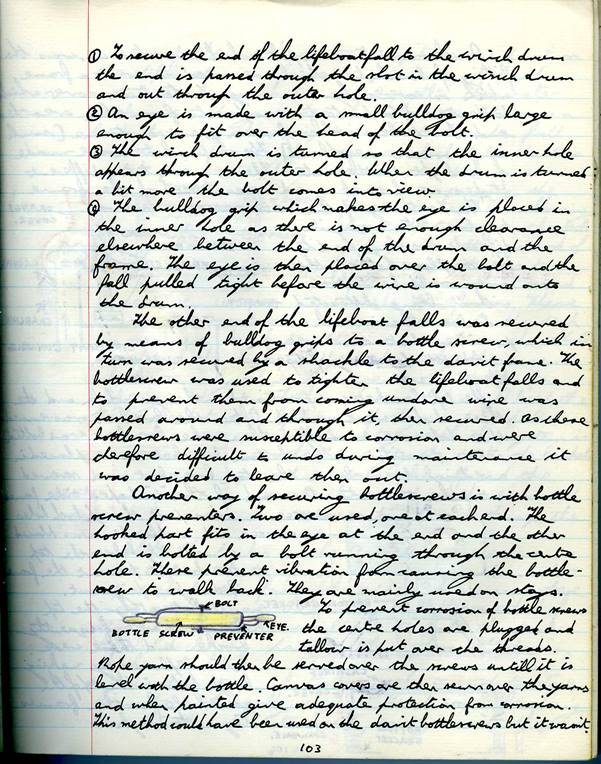 ① To secure the end of the lifeboat fall to the winch drum
the end is passed through the slot in the winch drum
and out through the outer hole.
② An eye is made with a small bulldog grip large
enough to fit over the head of the bolt.
③ The winch drum is turned so that the inner hole
appears through the outer hole. When the drum is turned
a bit more the bolt comes into view.
④ The bulldog grip which makes the eye is placed in
the inner hole as there is not enough clearance
elsewhere between the end of the drum and the
frame. The eye is then placed over the bolt and the
fall pulled tight before the wire is wound onto
the drum.
The other end of the lifeboat falls was secured
by means of bulldog grips to a bottle screw, which in
turn was secured by a shackle to the davit frame. The
bottlescrew was used to tighten the lifeboat falls and
to prevent them from coming undone wire was
passed around and through it, then secured. As these
bottlescrews were susceptible to corrosion and were
therefore difficult to undo during maintenance it
was decided to leave them out.
Another way of securing bottlescrews is with bottle
screw preventers. Two are used, one at each end. The
hooked part fits in the eye at the end and the other
end is bolted by a bolt running through the centre
hole. These prevent vibration from causing the bottle-
screw to walk back. They are mainly used on stays.
BOLT
EYE.
BOTTLE SCREW PREVENTER
To prevent corrosion of bottle screws
the centre holes are plugged and
tallow is put over the threads.
Rope yarn should then be served over the screws untill it is
level with the bottle. Canvas covers are then sewn over the yarns
and when painted give adequate protection from corrosion.
This method could have been used on the davit bottlescrews but it wasn't.
103